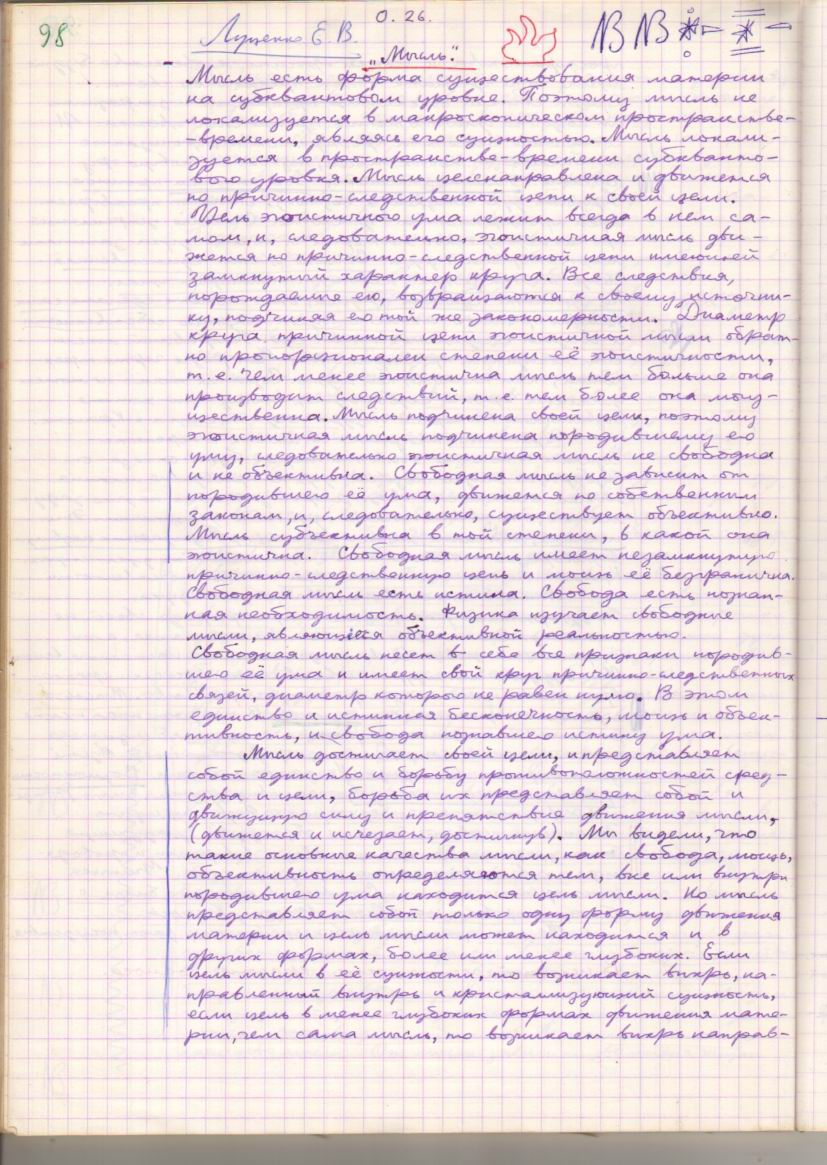 98
О. 26.
Луценко Е. В.
ВNВ
"Мысль".
Мысль есть форма существования материи
на субквантовом уровне. Поэтому мысль не
локализуется в макроскопическом пространстве-
-времени, являясь его сущностью. Мысль локали-
зуется в пространстве-времени субкванто-
вого уровня. Мысль целенаправлена и движется
по причинно-следственной цепи к своей цели.
Цель эгоистичного ума лежит всегда в нем са-
мом, и, следовательно, эгоистичная мысль дви-
жется по причинно-следственной цепи имеющей
замкнутый характер круга. Все следствия,
порождаемые ею, возвращаются к своему источни-
ку, подчиняя его той же закономерности. Диаметр
круга причинной цепи эгоистичной мысли обрат-
но пропорционален степени её эгоистичности,
т.е. чем менее эгоистична мысль тем больше она
производит следствий, т.е. тем более она могу-
щественна. Мысль подчинена своей цели, поэтому
эгоистичная мысль подчинена породившему ею
уму, следовательно эгоистичная мысль не свободна
и не объективна. Свободная мысль не зависит от
породившего её ума, движется по собственным
законам, и, следовательно, существует объективно.
Мысль субъективна в той степени, в какой она
эгоистична. Свободная мысль имеет незамкнутую
причинно-следственную цепь и мощь её безгранична.
Свободная мысль есть истина. Свобода есть познан-
ная необходимость. Физика изучает свободные
мысли, являющиеся объективной реальностью.
Свободная мысль несет в себе все признаки породив-
шего её ума и имеет свой круг причинно-следственных
связей, диаметр которого не равен нулю. В этом
единство и истинная бесконечность, мощь и объек-
тивность, и свобода познавшего истину ума.
Мысль достигает своей цели, и представляет
собой единство и борьбу противоположностей сред-
ства и цели, борьба их представляет собой и
движущую силу и препятствие движения мысли,
(движется и исчезает, достигнув). Мы видели, что
такие основные качества мысли, как свобода, мощь,
объективность определяются тем, вне или внутри
породившего ума находится цель мысли. Но мысль
представляет собой только одну форму движения
материи и цель мысли может находится и в
других формах, более или менее глубоких. Если
цель мысли в её сущности, то возникает вихрь, на-
правленный внутрь и кристаллизующий сущность,
если цель в менее глубоких формах движения мате-
рии, чем сама мысль, то возникает вихрь направ-